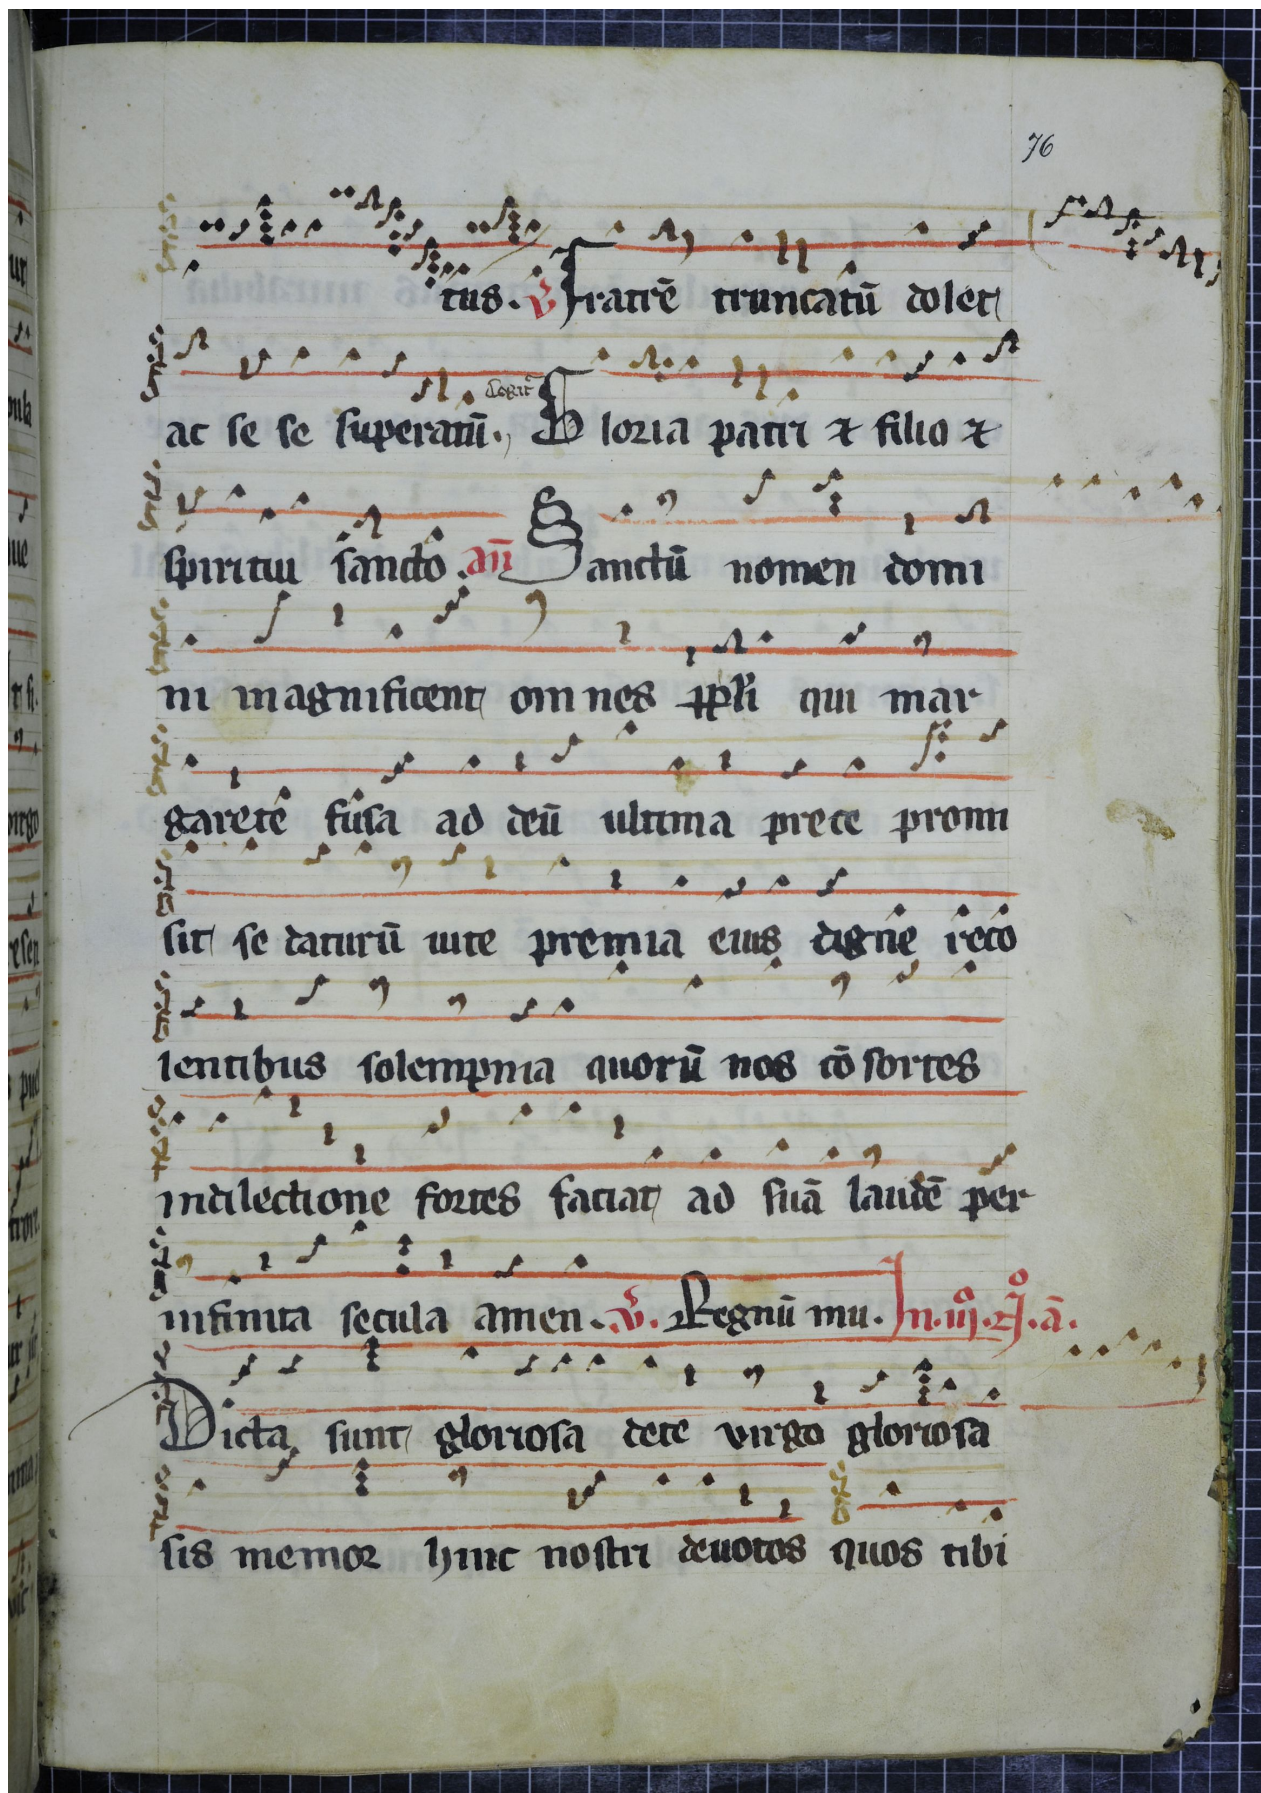 76
tus. Fratrē truncatū dolet
ac se se superatū. Cogit᷑ Gloria patri ⁊ filio ⁊
spiritui sancto. an̄ Sanctū nomen domi
ni magnificent omnes ppli qui mar
garete fusa ad deū ultima prece promi
sit se daturū iute premia eius digne reco
lentibus solempnia quorū nos cō sortes
in dilectione fortes faciat ad suā laudē per
infinita secula amen. v̄. Regnū mu. In. iijº. . ā.
Dicta sunt gloriosa de te virgo gloriosa
sis memor hinc nostri deuotos quos tibi